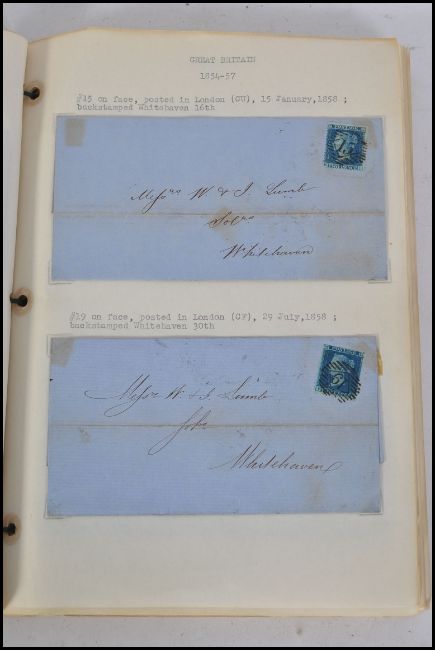 GREAT BRITAIN
1854-57
#15 on face, posted in London (CU), 15 January,1858 ;
backstamped Whitehaven 16th
Messrs W. & J. Lumb
Solrs
Whitehaven
#19 on face, posted in London (CY), 29 July,1858 ;
backstamped Whitehaven 30th
Messrs W. & J. Lumb
Solrs
Whitehaven